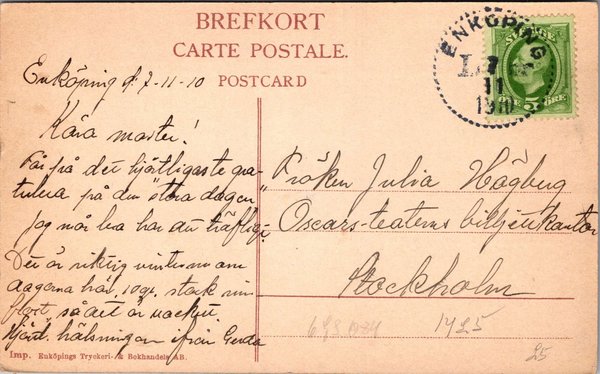 BREFKORT
CARTE POSTALE.
POSTCARD
ENKÖPING
7
11
1910
SVERIGE
ÖRE 5 ÖRE
Enköping d. 7-11-10
Kära moster!
Får på det hjärtligaste gra-
tulera på den "stora dagen"
Jag mår bra har det träfligt.
Det är riktig vinter nu om
dagarna har 10 gr. stark
så det är vackert
Hjärtl. hälsningar ifrån Gerda
Fröken Julia Högberg
Oscars-teaterns biljettkontor
Stockholm
1425
25
Imp. Enköpings Tryckeri- & Bokhandels AB.